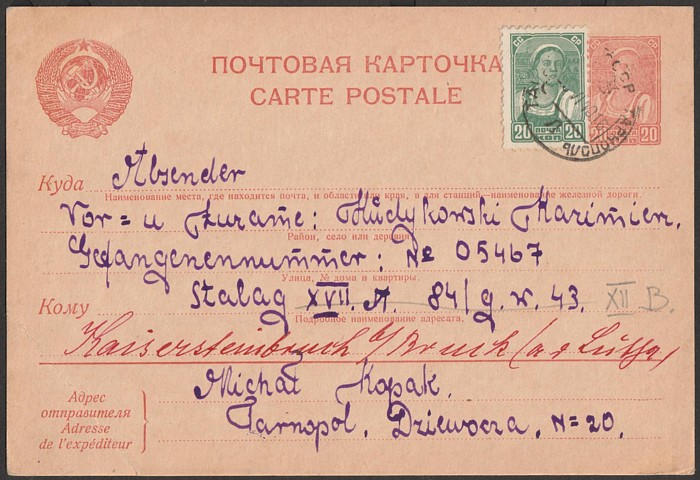 ПОЧТОВАЯ КАРТОЧКА
CARTE POSTALE
СС СР
20 ПОЧТА 20
КОП
СС СР
20
Куда Absender
Наименование места, где находится почта, и области или края, а для станций—наименование железной дороги.
Vor= u Zuname: Hudykowski Kazimierz.
Район, село или деревня
Gefangenennummer: № 05467
Улица, № дома и квартиры.
Stalag XVII. A. 84/g.w. 43. XII B.
Кому
Подробное наименование адресата.
Kaisersteinbruch b/Bruck (a.d
Michał Kopak.
Адрес
отправителя
Adresse
de l'expéditeur
Tarnopol, N=20.